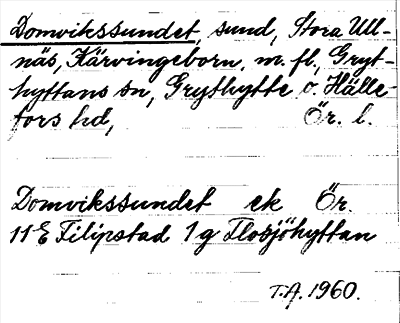 Domvikssundet, sund, Stora Ull-
näs, Kärvingeborn, m. fl., Gryt-
hyttans sn, Grythytte o. Hälle-
fors hd, Ör. l.
Domvikssundet ek Ör.
11E Filipstad 1g Flosjöhyttan
T.A. 1960.